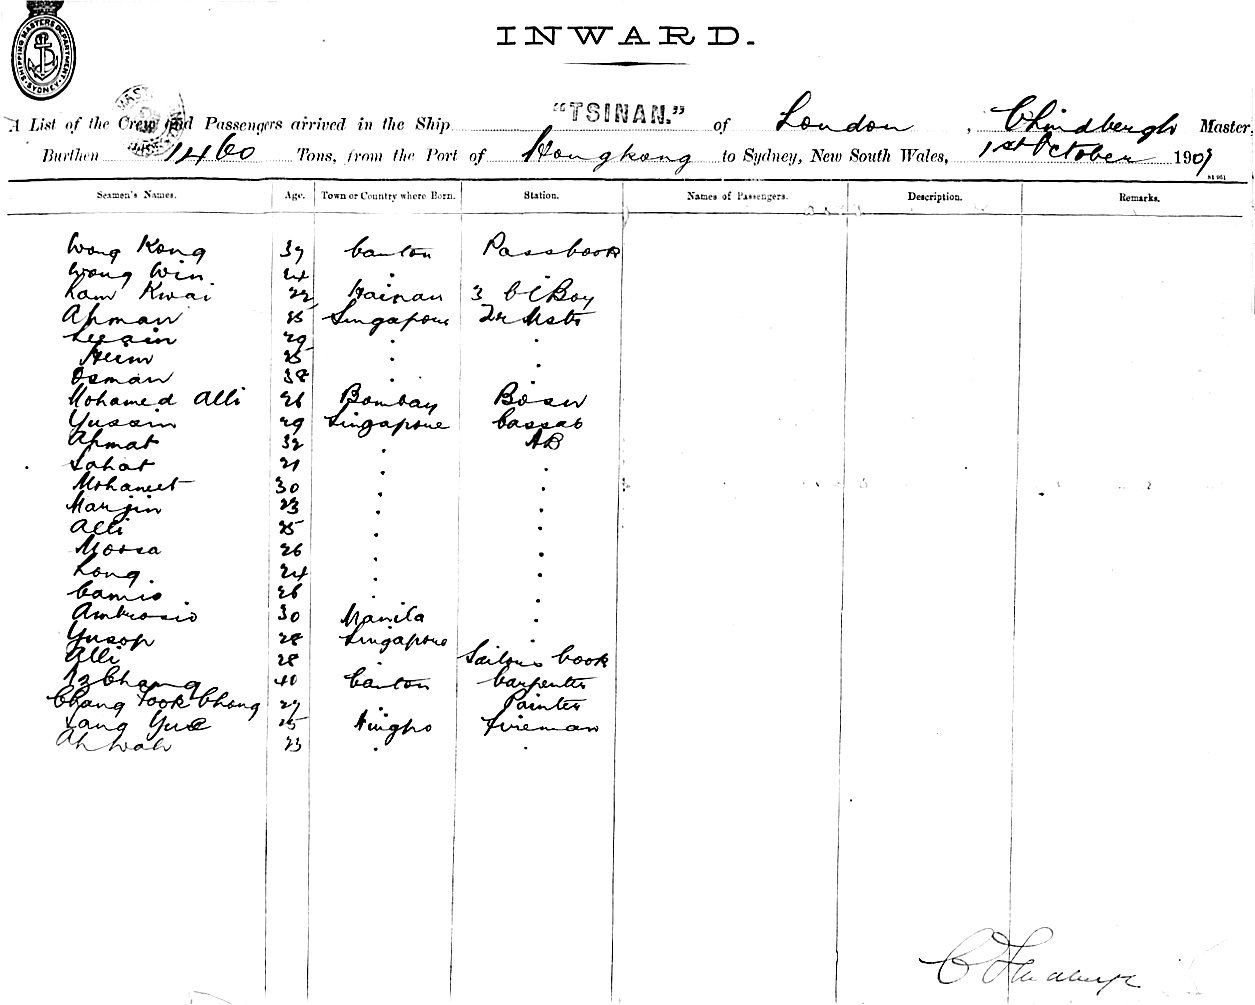 SHIPPING MASTERS DEPARTMENT SYDNEY
INWARD.
A List of the Crew and Passengers arrived in the Ship "TSINAN." of London, C Lindbergh Master,
Burthen 1460 Tons, from the Port of Hongkong to Sydney, New South Wales, 1st October 1909
Seamen's Names. Age. Town or Country where Born. Station. Names of Passengers. Description. Remarks.
Wong Kong 37 Canton
Wong Win 24 "
Kam Kwai 22 Hainan 3 Cl Boy
Ahman 25 Singapore Qr Mstr
29 " "
25 " "
Osman 38 " "
Mohamed Alli 26 Bombay Bosn
Yussin 29 Singapore Cassab
Ahmat 32 " AB
Sahat 21 " "
30 " "
Manjin 23 " "
Alli 25 " "
Moosa 26 " "
Long 24 " "
26 " "
Ambrosio 30 Manila "
Yusop 28 Singapore "
Alli 28 " Sailors Cook
40 Canton Carpenter
Chang Fook Chong 27 " Painter
25 Ningpo Fireman
Ah Wah 23 " "